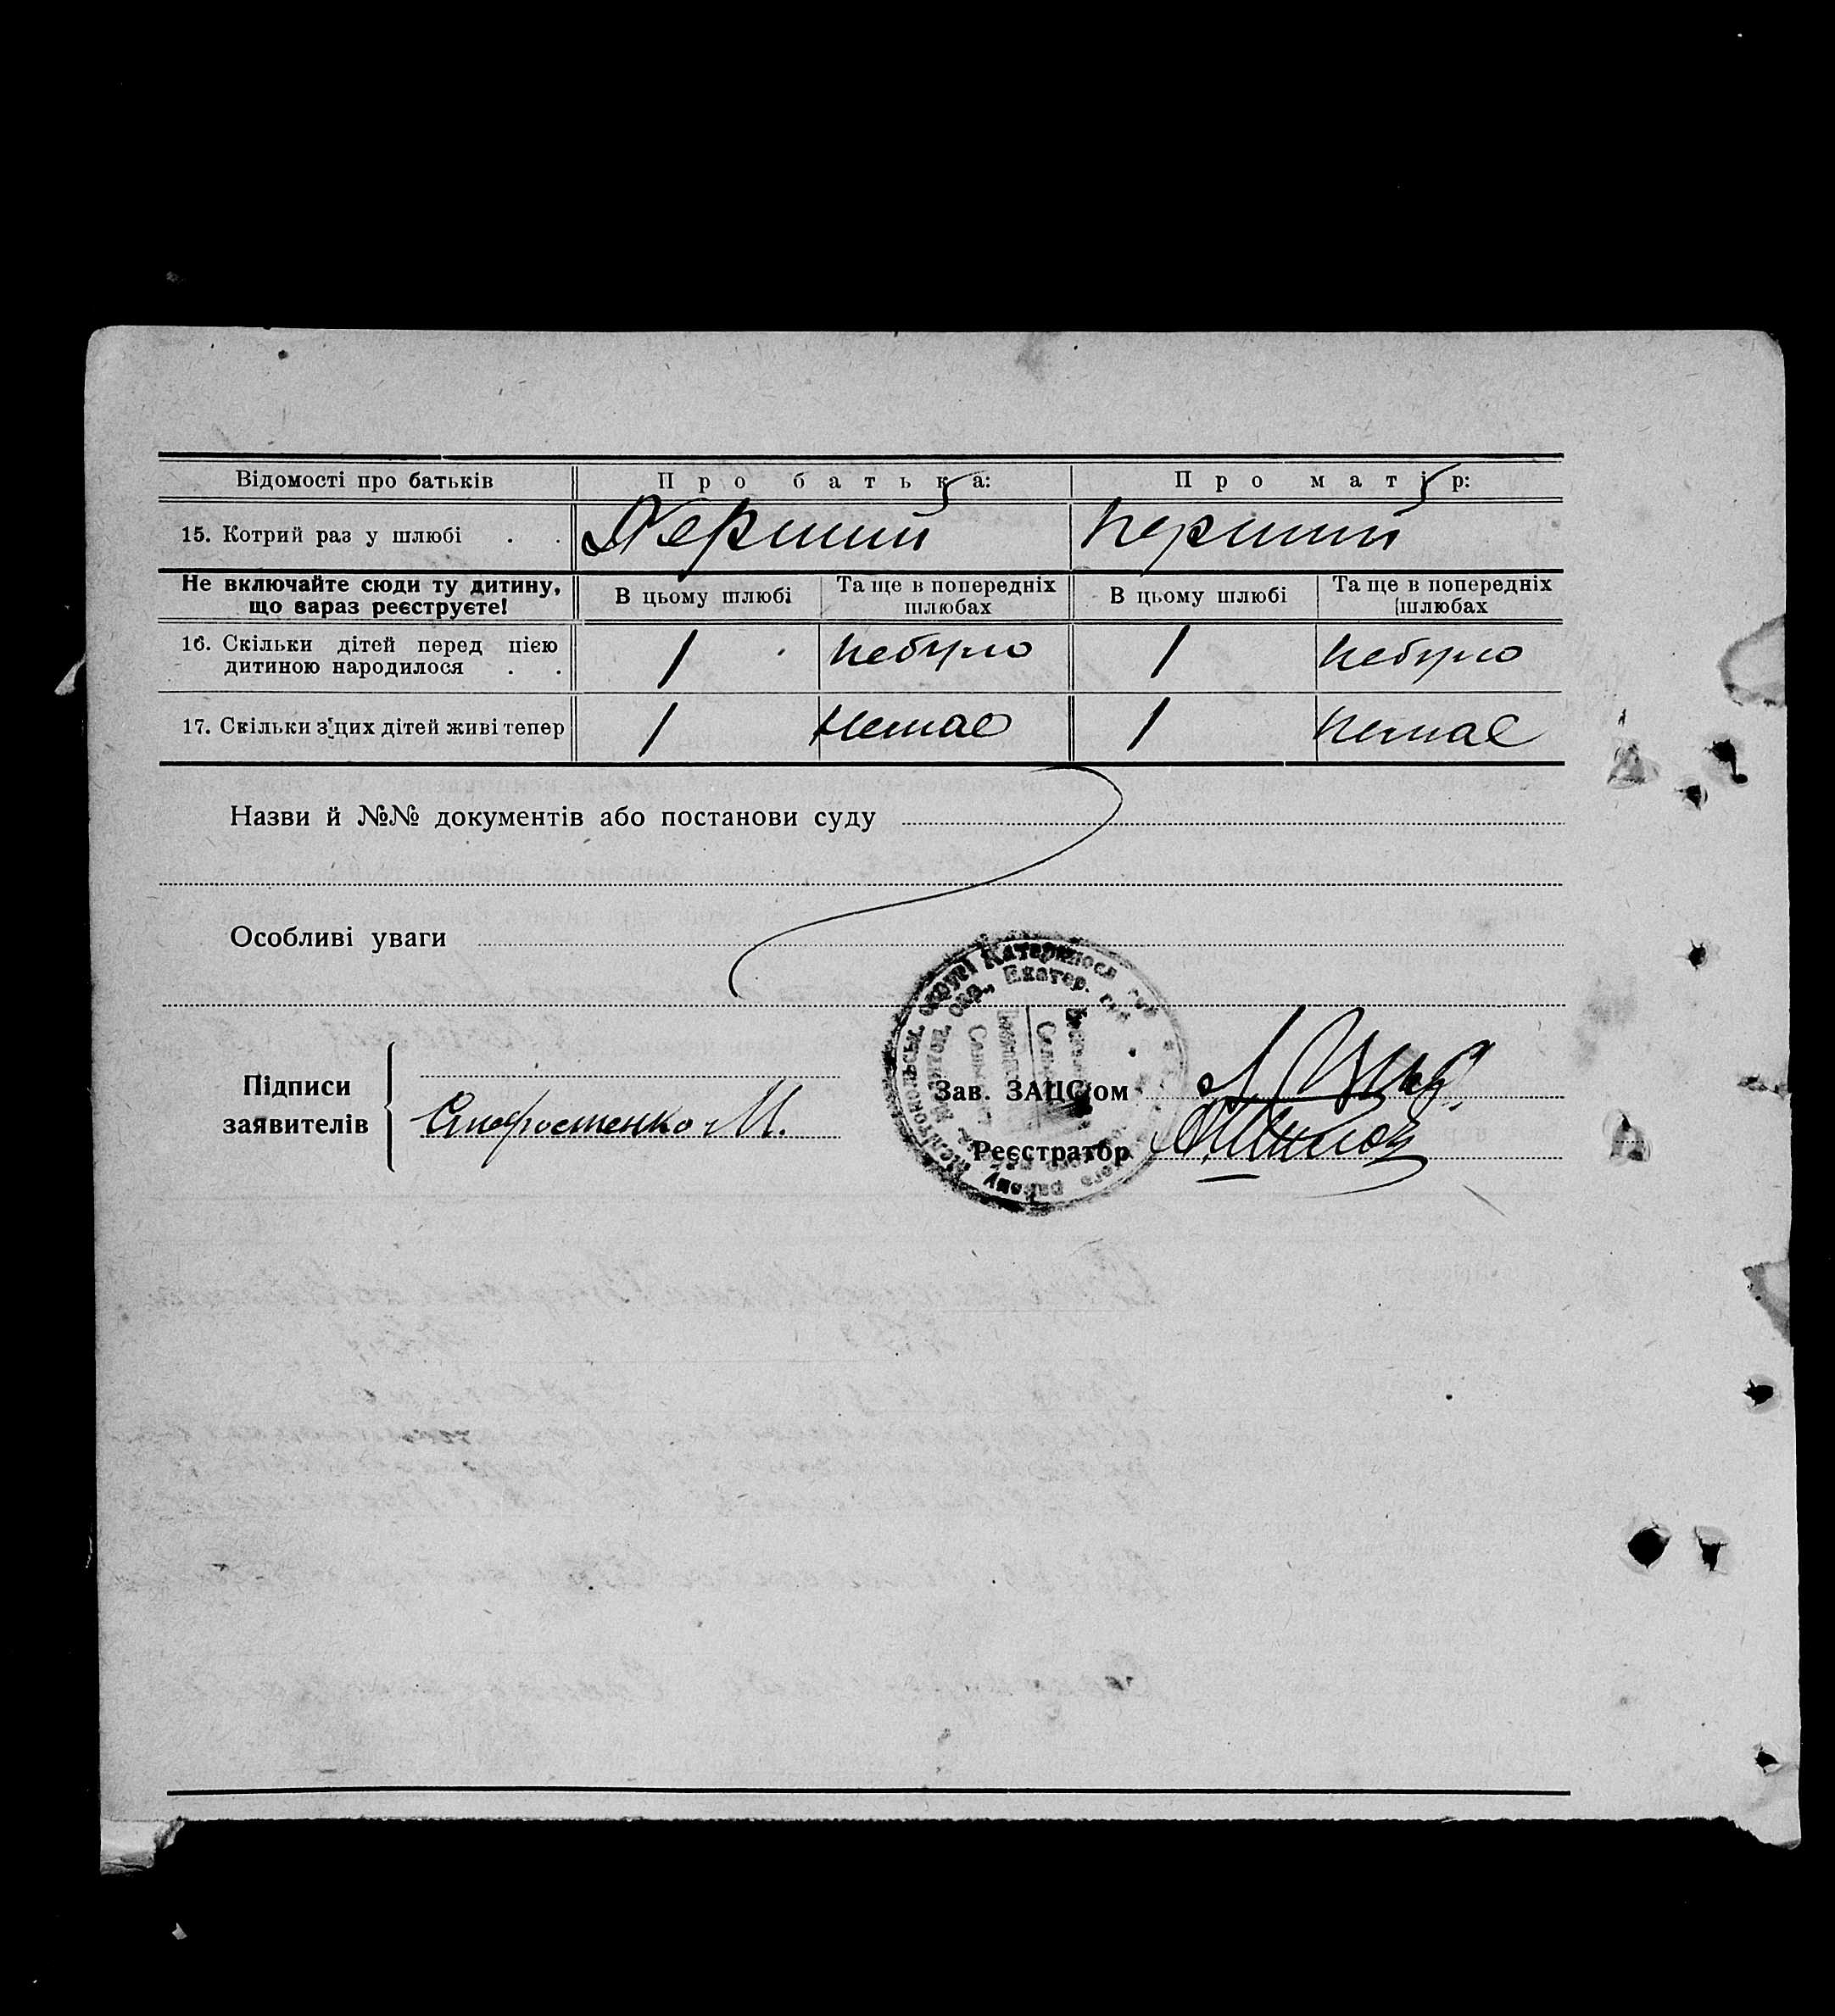 Відомості про батьків Про батька: Про матір:
15. Котрий раз у шлюбі . . Перший перший
Не включайте сюди ту дитину, що вараз реєструєте! В цьому шлюбі Та ще в попередніх шлюбах В цьому шлюбі Та ще в попередніх шлюбах
16. Скільки дітей перед цією дитиною народилося . . 1 небуло 1 небуло
17. Скільки з цих дітей живі тепер 1 немає 1 немає
Назви й №№ документів або постанови суду
Особливі уваги
Підписи заявителів
М.
Зав. ЗАЦС'ом
Реєстратор
округі Катеринос
окр., Екатер. г
району